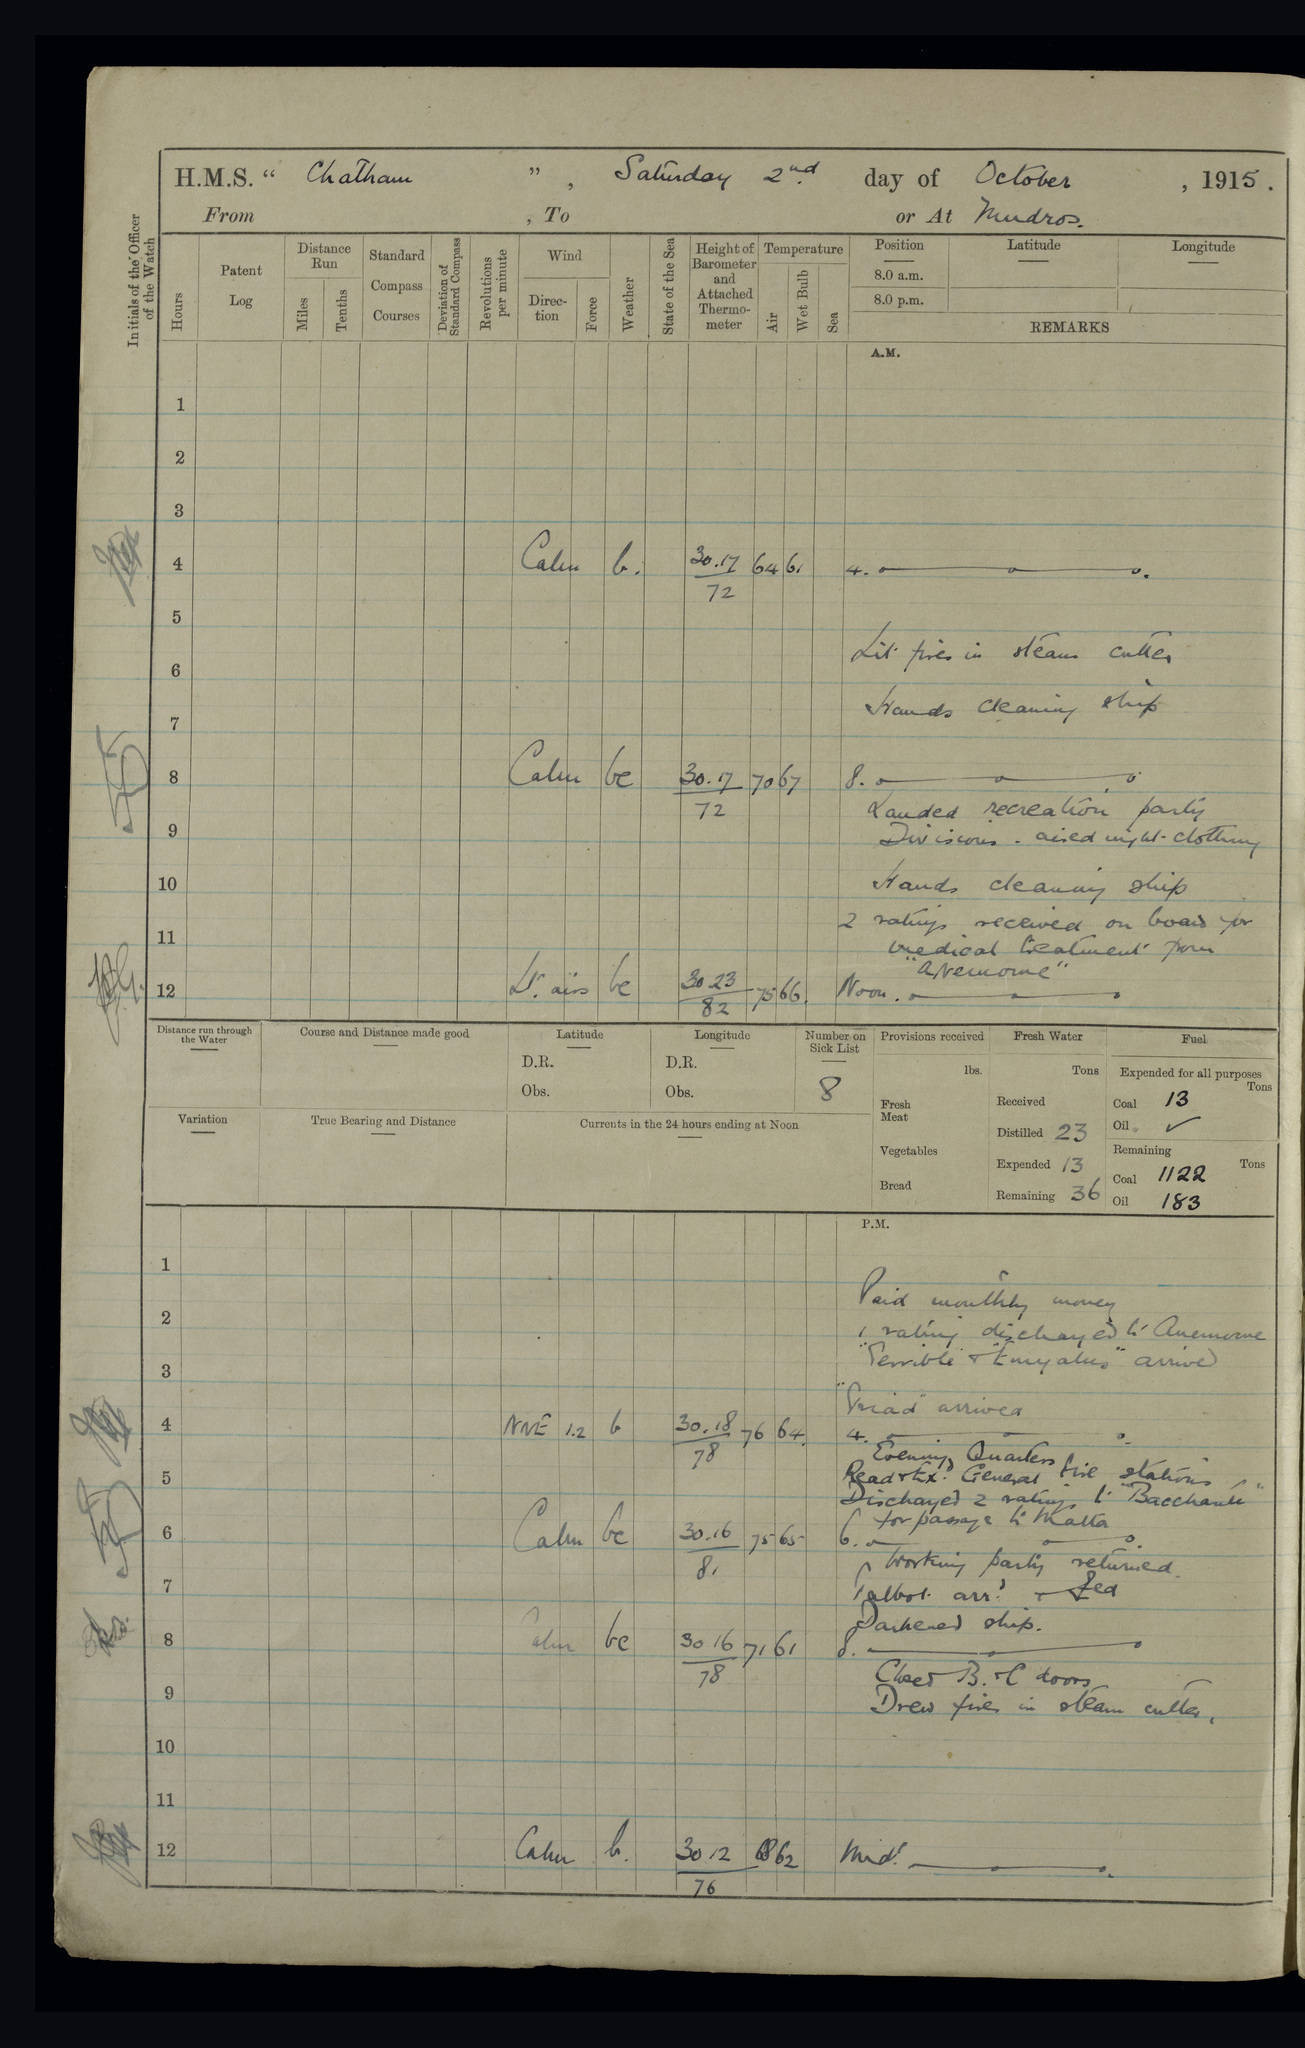 H.M.S. “ Chatham ” , Saturday 2nd day of October , 1915.
From , To or At Mudros.
Initials of the Officer of the Watch
Hours
Patent Log
Distance Run
Miles
Tenths
Standard Compass Courses
Deviation of Standard Compass
Revolutions per minute
Wind
Direc-tion
Force
Weather
State of the Sea
Height of Barometer and Attached Thermo-meter
Temperature
Air
Wet Bulb
Sea
Position
Latitude
Longitude
8.0 a.m.
8.0 p.m.
REMARKS
A.M.
1
2
3
4 Calm b. 30.17 64 61 4.
72
5
Lit fires in steam cutter
6
Hands cleaning ship
7
8 Calm bc 30.17 70 67 8.
72
Landed recreation party
9 Divisions - aired night-clothing
10 Hands cleaning ship
2 ratings received on board for
11 medical treatment from
"Anemone"
12 Lt. airs bc 30.23 75 66. Noon.
82
Distance run through the Water
Course and Distance made good
Latitude
D.R.
Obs.
Longitude
D.R.
Obs.
Number on Sick List
8
Provisions received
lbs.
Fresh Meat
Vegetables
Bread
Fresh Water
Tons
Received
Distilled 23
Expended 13
Remaining 36
Fuel
Expended for all purposes
Tons
Coal 13
Oil ✓
Remaining
Tons
Coal 1122
Oil 183
Variation
True Bearing and Distance
Currents in the 24 hours ending at Noon
P.M.
1
Paid monthly money
2 1 rating discharged to Anemone
3 "Terrible" & "Euryalus" arrived
"Triad" arrived
4 NNE 1.2 b 30.18 76 64. 4.
78
Evening Quarters
5 Read & Exd. General fire stations
Discharged 2 ratings to "Bacchante"
for passage to Malta
6 Calm bc 30.16 75 65 6.
81
Working party returned.
7 Talbot arrd.
Darkened ship.
8 Calm bc 30 16 71 61 8.
78
Closed B. & C doors
9 Drew fires in steam cutter.
10
11
12 Calm b. 30 12 68 62 Midt.
76